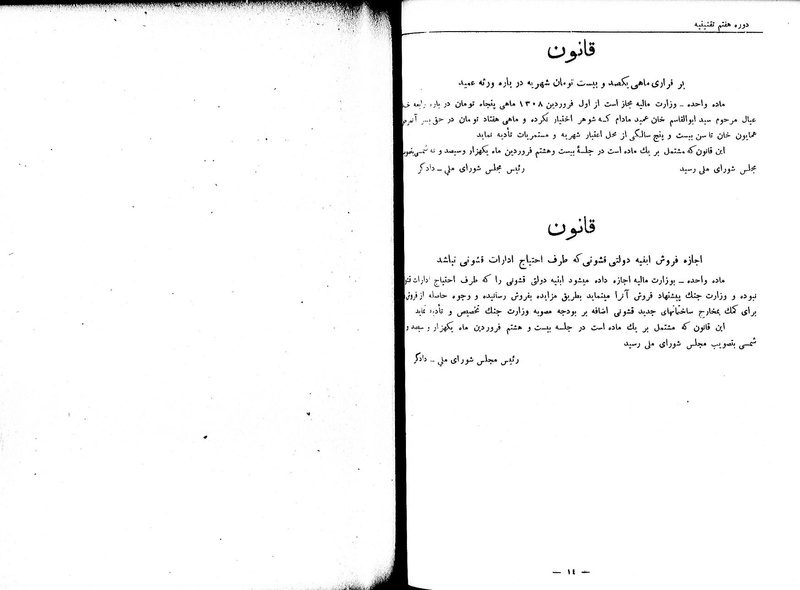 دوره هفتم تقنینیه
قانون
بر قراری ماهی یکصد و بیست تومان شهریه در باره ورثه عمید
ماده واحده ـ وزارت مالیه مجاز است از اول فروردین ۱۳۰۸ ماهی پنجاه تومان در باره رابعه
عیال مرحوم سید ابوالقاسم خان عمید مادام که شوهر اختیار نکرده و ماهی هفتاد تومان در حق پسر
همایون خان تا سن بیست و پنج سالگی از محل اعتبار شهریه و مستمریات تأدیه نماید
این قانون که مشتمل بر یك ماده است در جلسهٔ بیست وهشتم فروردین ماه یکهزار وسیصد و نه شمسی بتصویب
مجلس شورای ملی رسید
رئیس مجلس شورای ملی ـ دادگر
قانون
اجازه فروش ابنیه دولتی قشونی که طرف احتیاج ادارات قشونی نباشد
ماده واحده ـ بوزارت مالیه اجازه داده میشود ابنیه دولتی قشونی را که طرف احتیاج ادارات
نبوده و وزارت جنك پیشنهاد فروش آنرا مینماید بطریق مزایده بفروش رسانیده و وجوه حاصله از فروش
برای کمك بمخارج ساختمانهای جدید قشونی اضافه بر بودجه مصوبه وزارت جنك تخصیص و تأدیه نماید
این قانون که مشتمل بر یك ماده است در جلسه بیست و هشتم فروردین ماه یکهزار و سیصد و
شمسی بتصویب مجلس شورای ملی رسید
رئیس مجلس شورای ملی ـ دادگر
— ١٤ —